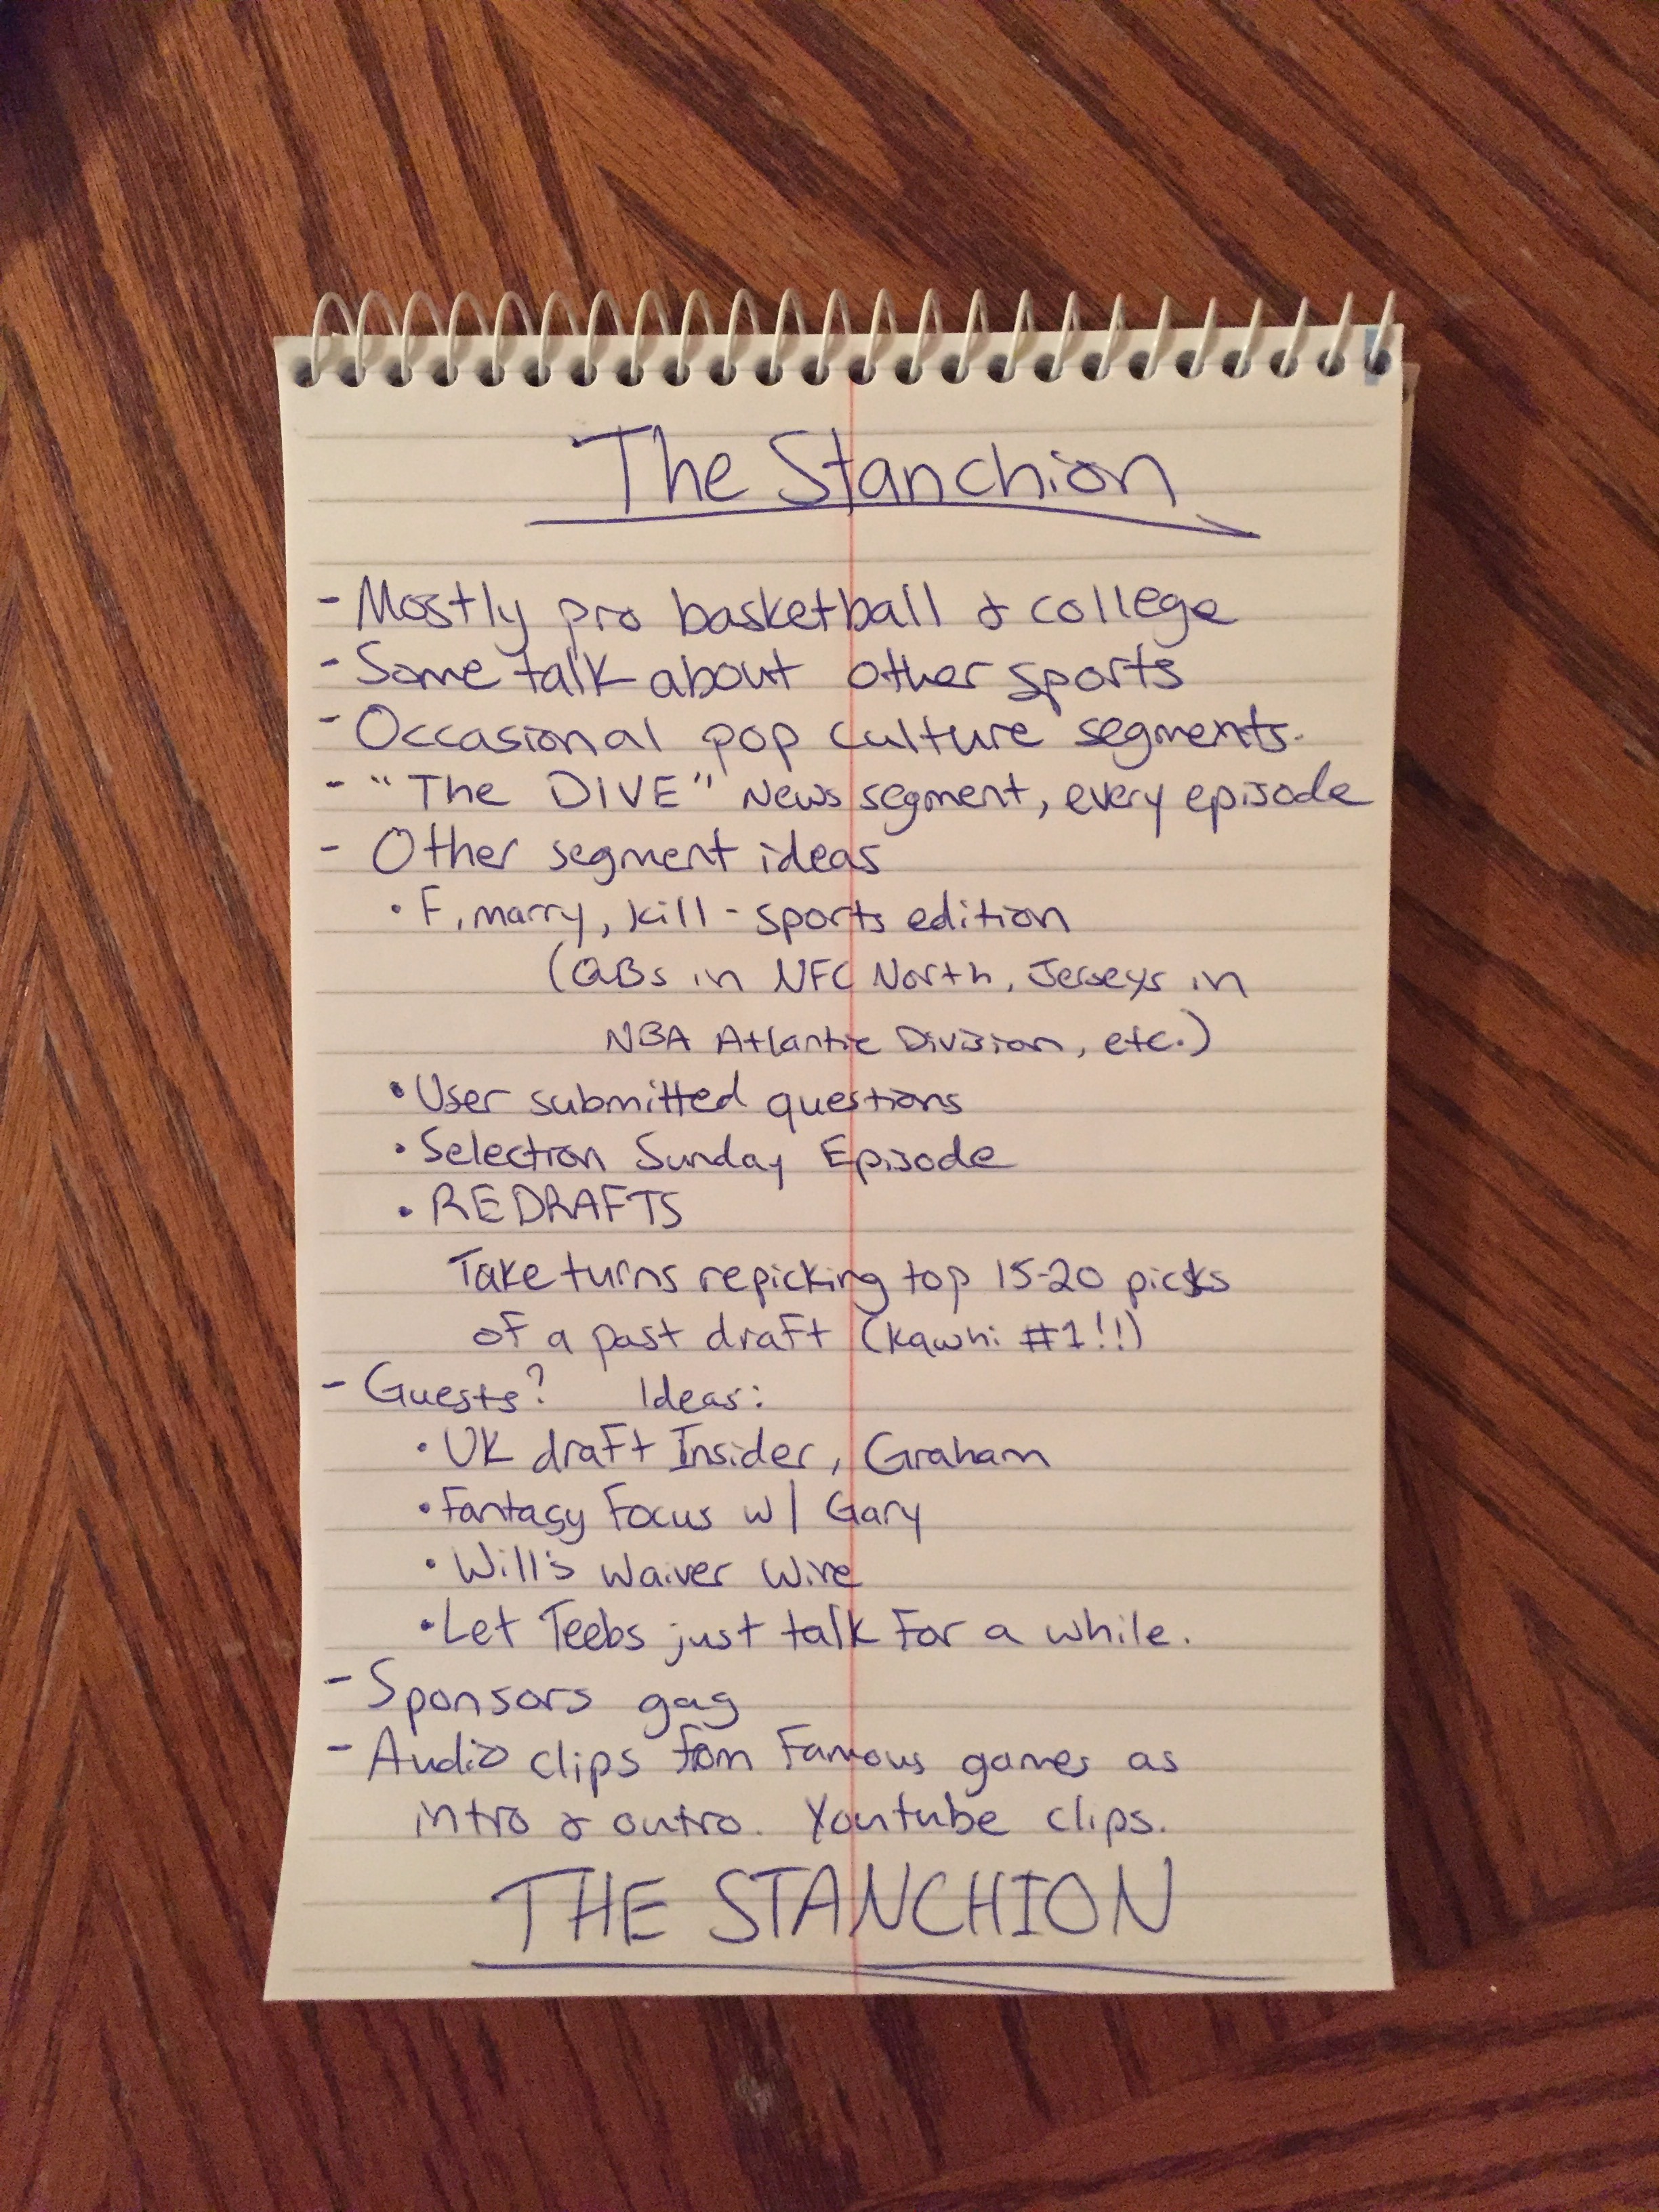 The Stanchion
- Mostly pro basketball & college
- Some talk about other sports
- Occasional pop culture segments.
- "The DIVE" News segment, every episode
- Other segment ideas
• F, marry, kill - sports edition
(QBs in NFC North, Jerseys in
NBA Atlantic Division, etc.)
• User submitted questions
• Selection Sunday Episode
• REDRAFTS
Take turns repicking top 15-20 picks
of a past draft (Kawhi #1!!)
- Guests? Ideas:
• UK draft Insider, Graham
• Fantasy Focus w/ Gary
• Will's Waiver Wire
• Let Teebs just talk for a while.
- Sponsors gag
- Audio clips from famous games as
intro & outro. Youtube clips.
THE STANCHION